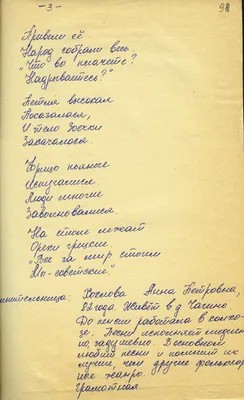 - 3 -
98
Привели её
Народ собрали весь
"Что вы плачете?
Надрываетесь?"
Петля высокая
Показалася,
И тело Зоечки
Закачалося.
Фрицы пьяные
Испугалися
Люди многие
Заволновалися.
На столе лежат
Орехи грецкие,
"Все за мир стоим
Мы - советские."
Хохлова Анна Петровна,
83 года. Живёт в д. Чагино.
До пенсии работала в совхо-
зе. Песни исполняет
но задушевно. В основном
любит песни и помнит их
лучше, чем другие фольклор-
ные жанры.
Грамотная.